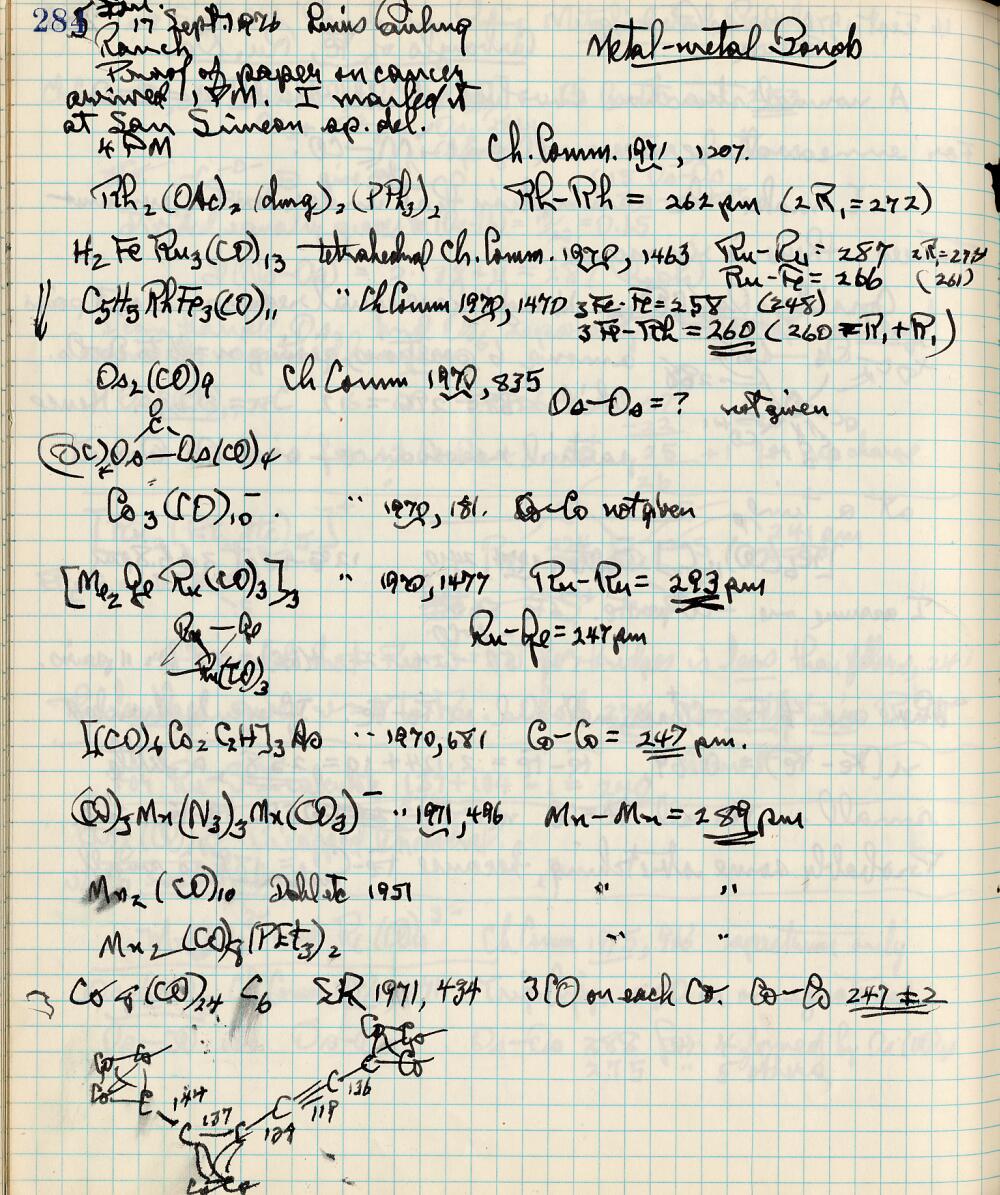 284
17 Sept. 1976 Linus Pauling
Metal-metal Bonds
Ranch
Proof of paper on cancer
arrived 1 PM. I marked it
at San Simeon sp. del.
4 PM
Ch. Comm. 1971, 1207.
Rh2(OAc)2(dmg)2(PPh3)2 Rh-Rh = 262 pm (2R1=272)
H2FeRu3(CO)13 tetrahedral Ch. Comm. 1970, 1463 Ru-Ru = 287
Ru-Fe = 266 (261)
C5H5RhFe3(CO)11 " Ch Comm 1970, 1470 3 Fe-Fe = 258 (248)
3 Fe-Rh = 260 (260 = R1+R1)
Os2(CO)9 Ch Comm 1970, 835
Os-Os = ? not given
O
C
(OC)4Os—Os(CO)4
Co3(CO)10-. " 1970, 181. Co-Co not given
[Me2GeRu(CO)3]3 " 1970, 1477 Ru-Ru = 293 pm
Ru—Ge
Ru-Ge = 247 pm
Ru(CO)3
[(CO)6Co2C2H]3As " 1970, 681 Co-Co = 247 pm.
(CO)3Mn(N3)3Mn(CO3)- " 1971, 496 Mn-Mn = 289 pm
Mn2(CO)10 Dahl etc 1951 " "
Mn2(CO)8(PEt3)2 " "
Co8(CO)24C6 SR 1971, 434 3CO on each Co. Co-Co 247±2
Co Co
Co
Co Co
Co C
C 136
C 119
C 129
144
C 137 C
Co Co